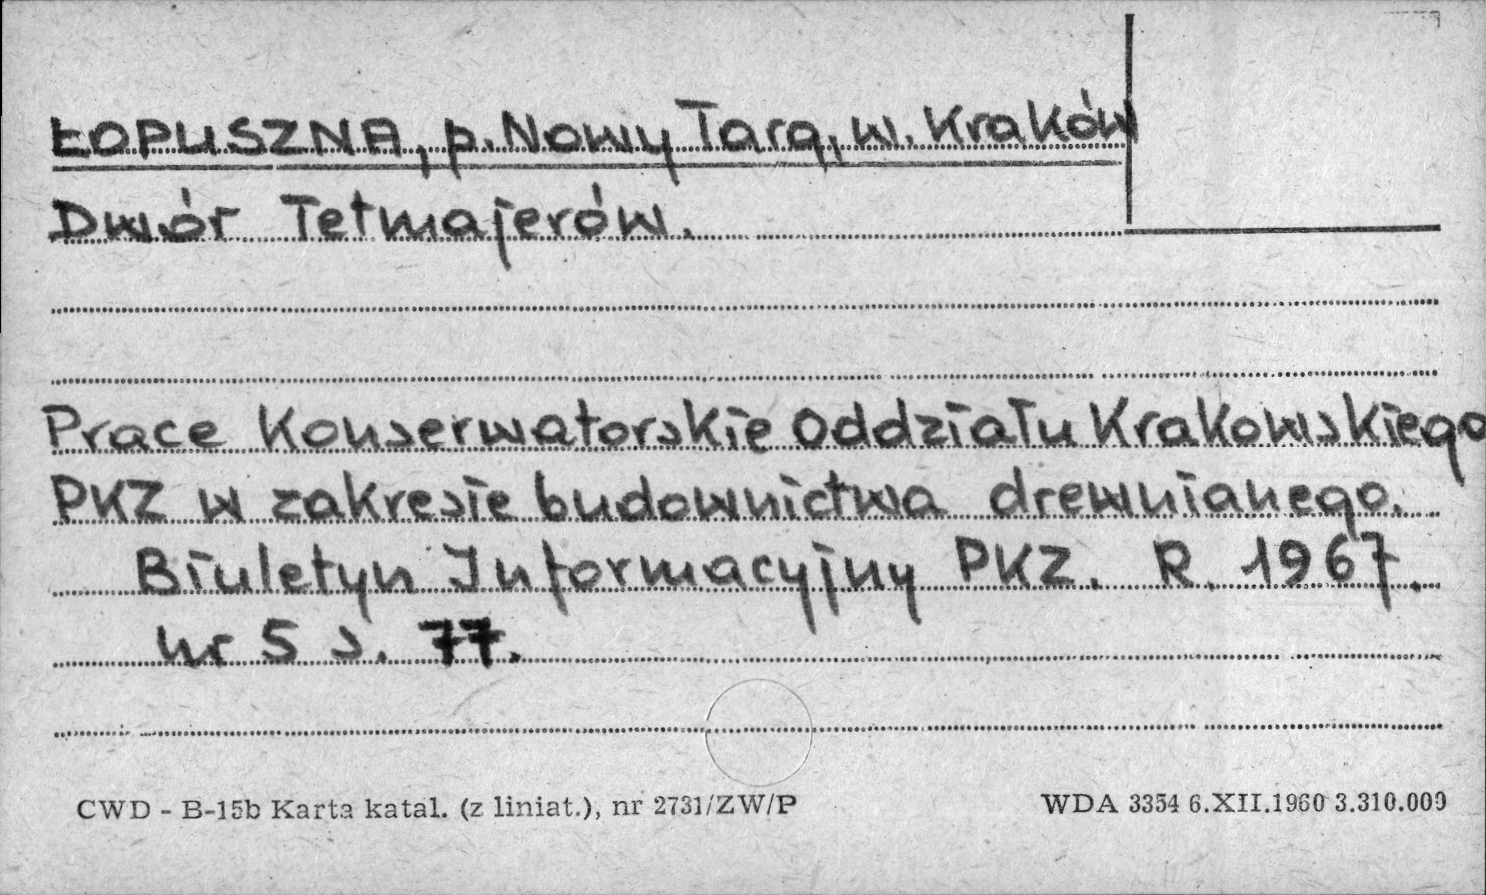 ŁOPUSZNA, p. Nowy Targ, w. Kraków
Dwór Tetmajerów.
Prace Konserwatorskie Oddziału Krakowskiego
PKZ w zakresie budownictwa drewnianego.
Biuletyn Informacyjny PKZ. R. 1967.
nr 5 s. 77.
CWD - B-15b Karta katal. (z liniat.), nr 2731/ZW/P
WDA 3354 6.XII.1960 3.310.000